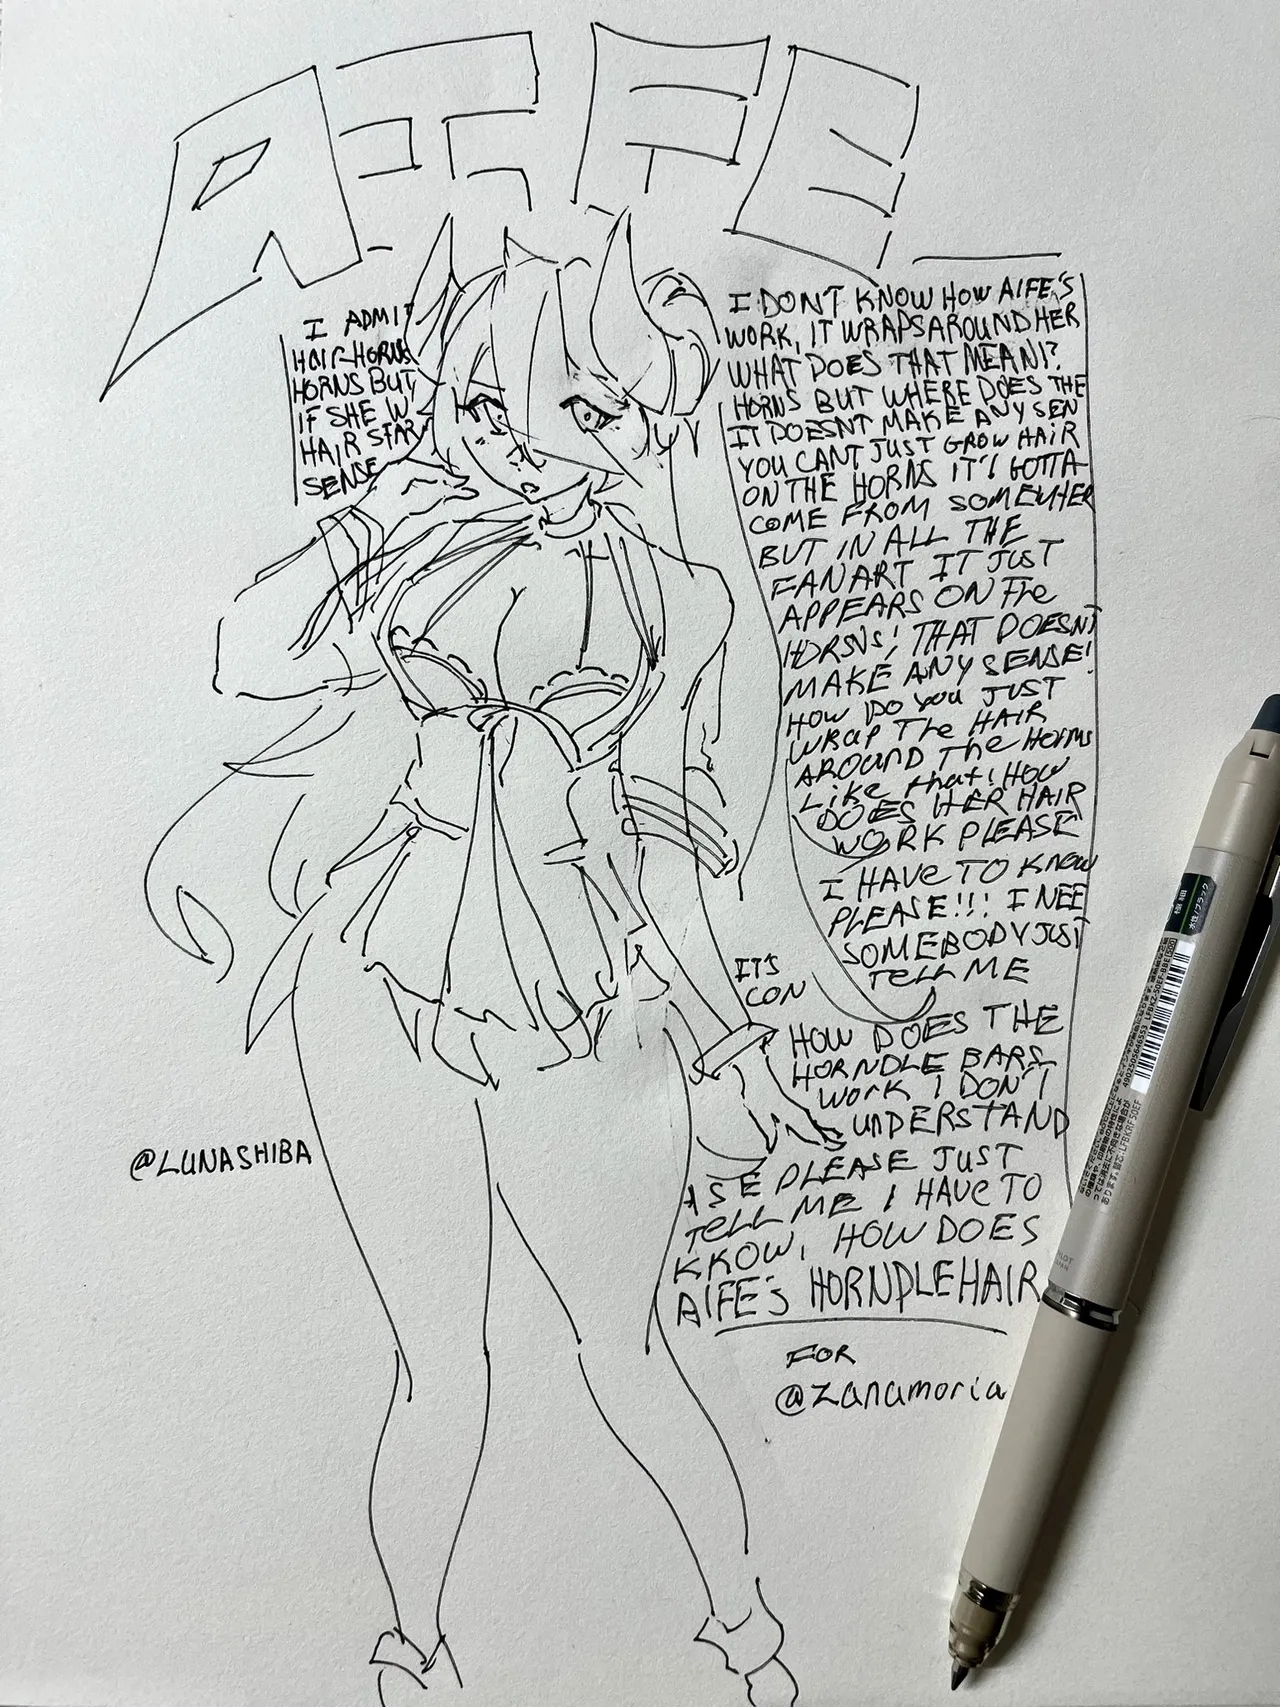 AIFE
I ADMIT
HAIR HORNS
HORNS BUT
IF SHE W
HAIR STAR
SENSE
I DON'T KNOW HOW AIFE'S
WORK, IT WRAPS AROUND HER
WHAT DOES THAT MEAN!?
HORNS BUT WHERE DOES THE
IT DOESNT MAKE ANY SEN
YOU CANT JUST GROW HAIR
ON THE HORNS IT'S GOTTA
COME FROM SOMEWHER
BUT IN ALL THE
FANART IT JUST
APPEARS ON The
HORSNS! THAT DOESNT
MAKE ANY SENSE!
HOW DO YOU JUST
WRAP The HAIR
AROUND The HORNS
Like that! HOW
DOES HER HAIR
WORK PLEASE
I HAVE TO KNOW
PLEASE!!! I NEE
SOMEBODY JUST
TELL ME
IT'S
CON
HOW DOES THE
HORNDLE BARS
WORK I DON'T
UNDERSTAND
ASE PLEASE JUST
TELL ME I HAVE TO
KKOW, HOW DOES
AIFE'S HORNDLEHAIR
@LUNASHIBA
FOR
@zanamoria
極細
水性/ブラック
LFBKZ-50EF-BBE
4902505646553
LFBKRF50EF
PILOT
JAPAN